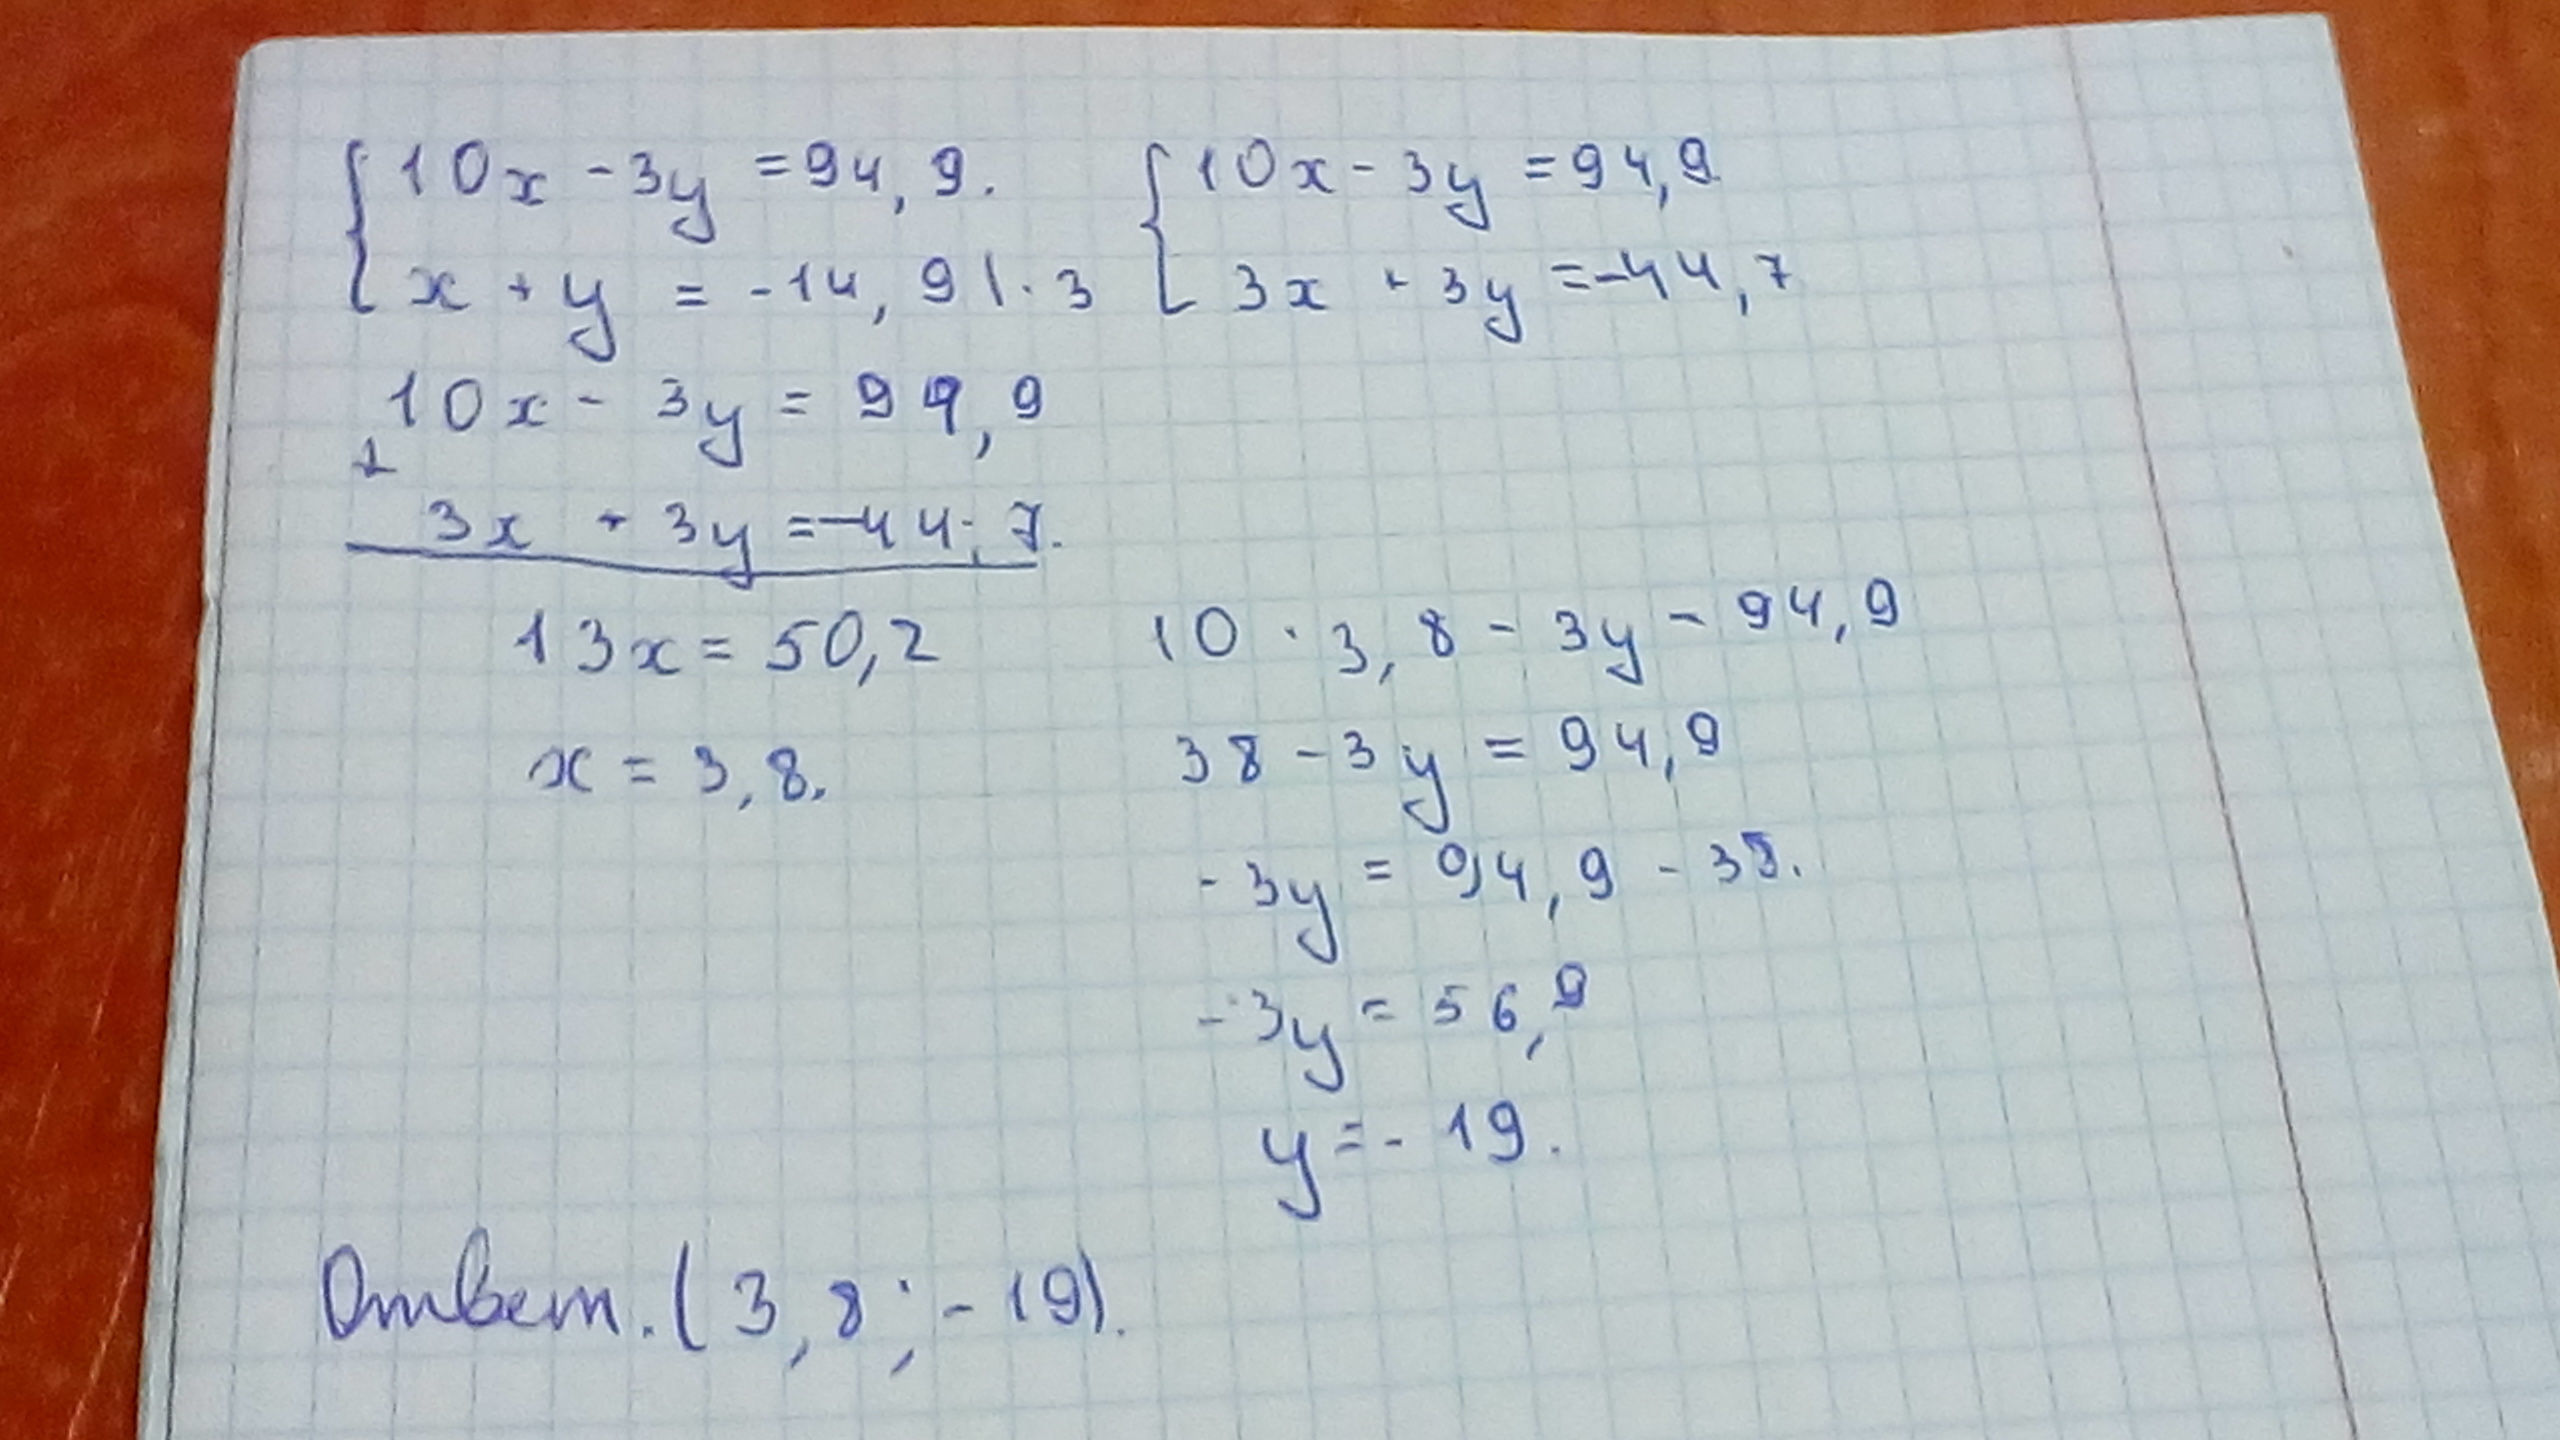 10x - 3y = 94,9. 10x - 3y = 94,9
x + y = -14,9 | · 3 3x + 3y = -44,7
10x - 3y = 94,9
+
3x + 3y = -44,7.
13x = 50,2 10 · 3,8 - 3y - 94,9
x = 3,8. 38 - 3y = 94,9
-3y = 94,9 - 38.
-3y = 56,9
y = -19.
Ответ. (3,8; -19).